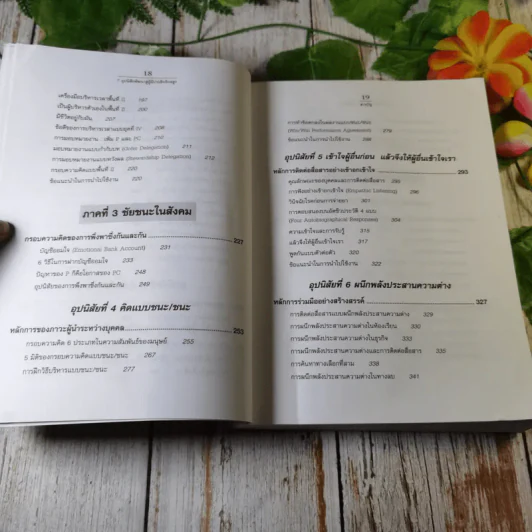 18
7 อุปนิสัยพัฒนาสู่ผู้มีประสิทธิผลสูง
เครื่องมือบริหารเวลาพื้นที่ 2 187
เป็นผู้บริหารตัวเองในพื้นที่ 2 190
มีชีวิตอยู่กับมัน 207
ข้อดีของการบริหารเวลาแบบยุคที่ IV
การมอบหมายงาน เพิ่ม P และ PC 210
มอบหมายงานแบบกำกับบท (Gofer Delegation) 211
การมอบหมายงานแบบหวังผล (Stewardship Delegation) 212
กรอบความคิดแบบพื้นที่ 2 220
ข้อแนะนำในการนำไปใช้งาน 220
ภาคที่ 3 ชัยชนะในสังคม
กรอบความคิดของการพึ่งพาซึ่งกันและกัน 227
บัญชีออมใจ (Emotional Bank Account) 231
6 วิธีในการฝากบัญชีออมใจ 233
ปัญหาของ P ก็คือโอกาสของ PC 248
อุปนิสัยของการพึ่งพาซึ่งกันและกัน 249
อุปนิสัยที่ 4 คิดแบบชนะ/ชนะ
หลักการของภาวะผู้นำระหว่างบุคคล 253
กรอบความคิด 6 ประเภทในความสัมพันธ์ของมนุษย์ 255
5 มิติของกรอบความคิดแบบชนะ/ชนะ 267
การฝึกวิธีบริหารแบบชนะ/ชนะ 277
19
สารบัญ
(Win/Win Performance Agreement) 279
ข้อแนะนำในการนำไปใช้งาน 289
อุปนิสัยที่ 5 เข้าใจผู้อื่นก่อน แล้วจึงให้ผู้อื่นเข้าใจเรา
หลักการติดต่อสื่อสารอย่างเข้าอกเข้าใจ 293
คุณลักษณะของบุคคลและการติดต่อสื่อสาร 295
การฟังอย่างเข้าอกเข้าใจ (Empathic Listening)
วินิจฉัยโรคก่อนการจ่ายยา 301
การตอบสนองบนอัตชีวประวัติ 4 แบบ
(Four Autobiographical Responses) 304
ความเข้าใจและการรับรู้ 315
แล้วจึงให้ผู้อื่นเข้าใจเรา 317
พูดกันแบบตัวต่อตัว 320
ข้อแนะนำในการนำไปใช้งาน
อุปนิสัยที่ 6 ผนึกพลังประสานความต่าง
หลักการร่วมมืออย่างสร้างสรรค์ 327
การติดต่อสื่อสารแบบผนึกพลังประสานความต่าง 329
การผนึกพลังประสานความต่างในห้องเรียน 330
การผนึกพลังประสานความต่างในธุรกิจ 332
การผนึกพลังประสานความต่างและการติดต่อสื่อสาร 335
การค้นหาทางเลือกที่สาม 338
การผนึกพลังประสานความต่างในทางลบ 341